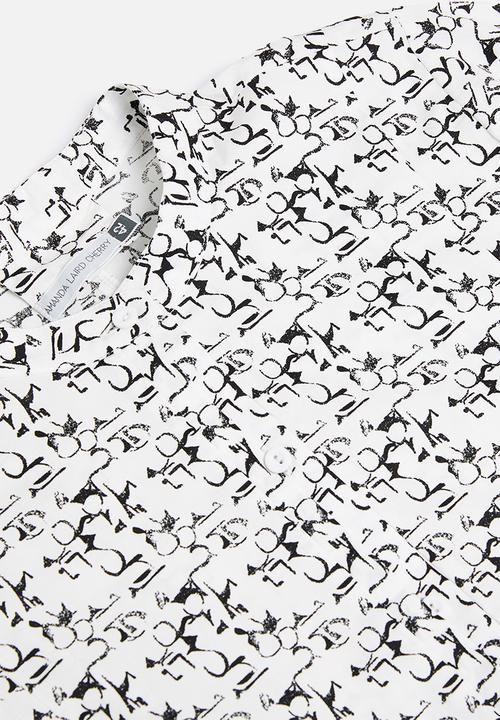 AMANDA LAIRD CHERRY
42